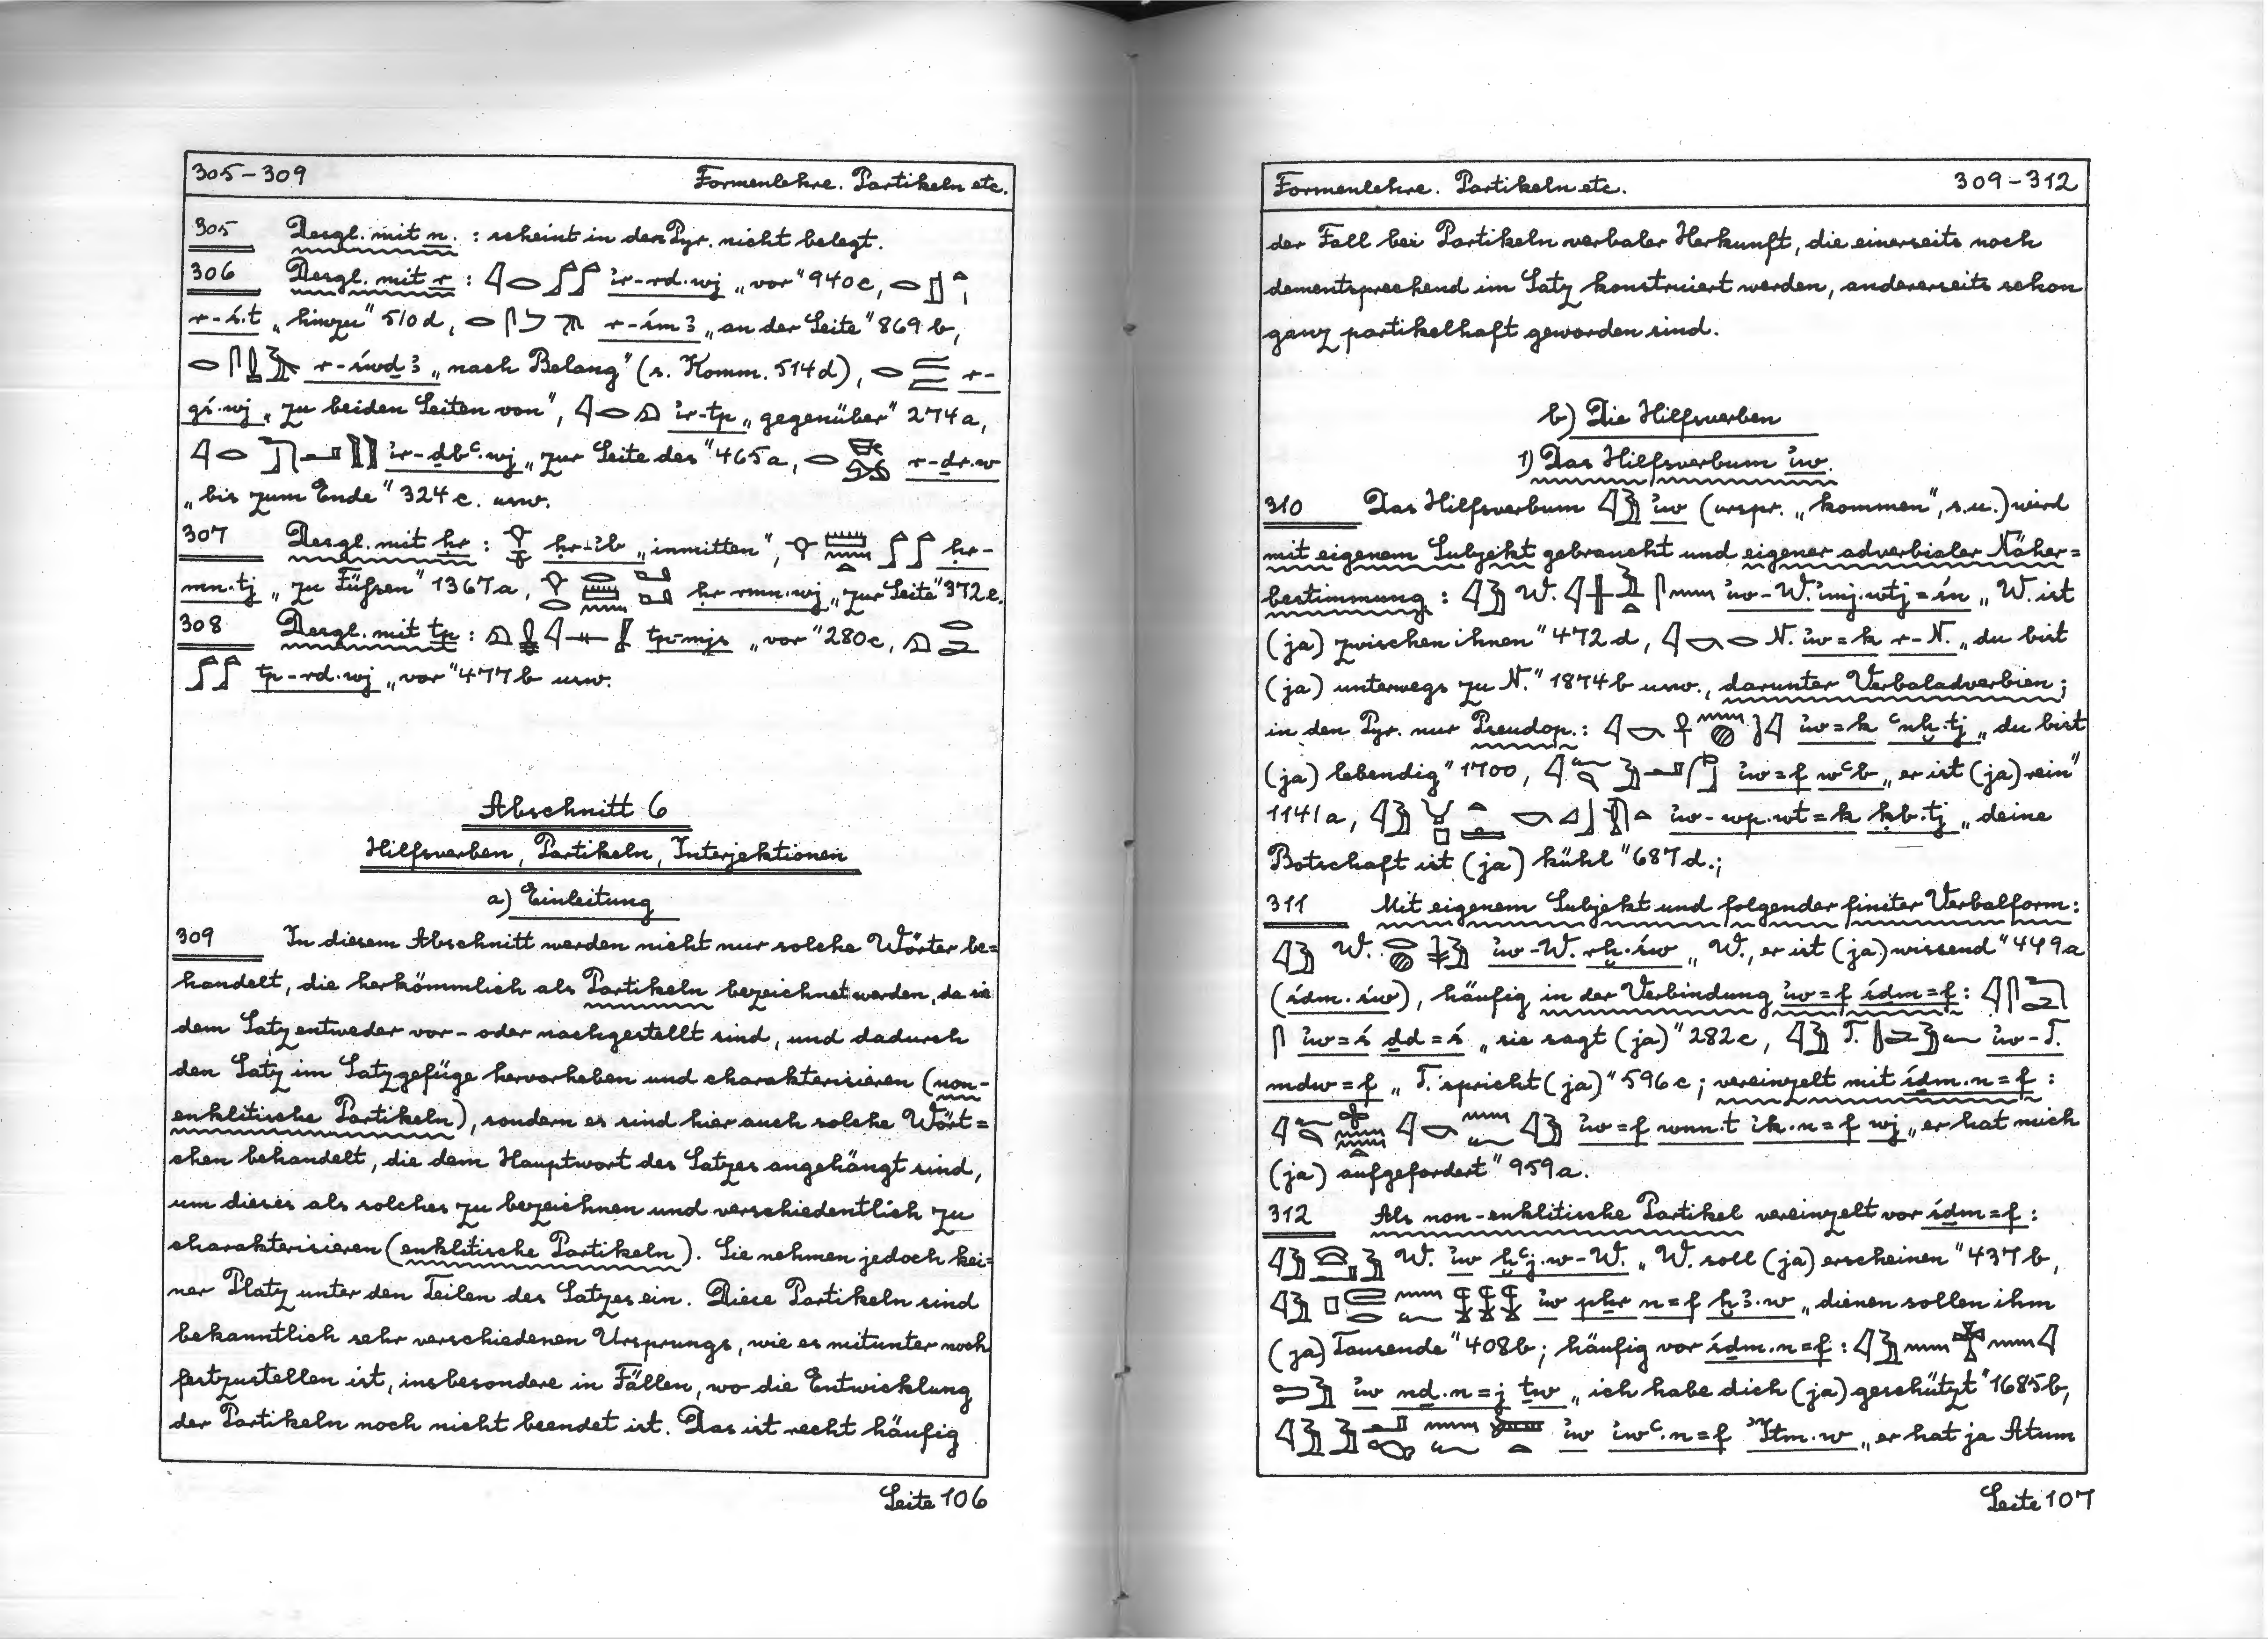 305-309 Formenlehre. Partikeln etc.
305 Desgl. mit n. : scheint in den Pyr. nicht belegt.
306 Desgl. mit r : ı͗r-rd.wj „vor" 940c,
r-ś.t „hinzu" 510d, r-śmꜣ „an der Seite" 869b,
r-śwḏꜣ „nach Belang" (s. Komm. 514d), r-
gś.wj „zu beiden Seiten von", ı͗r-tp „gegenüber" 274a,
ı͗r-ḏbꜥ.wj „zur Seite des" 465a, r-ḏr.w
„bis zum Ende" 324c. usw.
307 Desgl. mit ḥr : ḥr-ı͗b „inmitten", ḥr-
mn.tj „zu Füßen" 1367a, ḥr rmn.wj „zur Seite" 372c.
308 Desgl. mit tp : tp-mjs „vor" 280c,
tp-rd.wj „vor" 477b usw.
Abschnitt 6
Hilfsverben, Partikeln, Interjektionen
a) Einleitung
309 In diesem Abschnitt werden nicht nur solche Wörter be=
handelt, die herkömmlich als Partikeln bezeichnet werden, da sie
dem Satz entweder vor- oder nachgestellt sind, und dadurch
den Satz im Satzgefüge hervorheben und charakterisieren (non-
enklitische Partikeln), sondern es sind hier auch solche Wört=
chen behandelt, die dem Hauptwort des Satzes angehängt sind,
um dieses als solches zu bezeichnen und verschiedentlich zu
charakterisieren (enklitische Partikeln). Sie nehmen jedoch kei=
ner Platz unter den Teilen des Satzes ein. Diese Partikeln sind
bekanntlich sehr verschiedenen Ursprungs, wie es mitunter noch
festzustellen ist, insbesondere in Fällen, wo die Entwicklung
der Partikeln noch nicht beendet ist. Das ist recht häufig
Seite 106
Formenlehre. Partikeln etc. 309-312
der Fall bei Partikeln verbaler Herkunft, die einerseits noch
dementsprechend im Satz konstruiert werden, andererseits schon
ganz partikelhaft geworden sind.
b) Die Hilfsverben
1) Das Hilfsverbum ı͗w.
310 Das Hilfsverbum ı͗w (urspr. „kommen", s.u.) wird
mit eigenem Subjekt gebraucht und eigener adverbialer Näher=
bestimmung : W. ı͗w-W. ı͗mj.wtj=śn „W. ist
(ja) zwischen ihnen" 472d, N. ı͗w=k r-N. „du bist
(ja) unterwegs zu N." 1874b usw., darunter Verbaladverbien;
in den Pyr. nur Pseudop. : ı͗w=k ꜥnḫ.tj „du bist
(ja) lebendig" 1700, ı͗w=f wꜥb „er ist (ja) rein"
1141a, ı͗w-wp.wt=k ḳb.tj „deine
Botschaft ist (ja) kühl" 687d.;
311 Mit eigenem Subjekt und folgender finiter Verbalform:
W. ı͗w-W. rḫ.św „W., er ist (ja) wissend" 449a
(śḏm.św), häufig in der Verbindung ı͗w=f śḏm=f :
ı͗w=ś ḏd=ś „sie sagt (ja)" 282c, T. ı͗w-T.
mdw=f „T. spricht (ja)" 596c; vereinzelt mit śḏm.n=f :
ı͗w=f wnn.t ı͗k.n=f wj „er hat mich
(ja) aufgefordert" 959a.
312 Als non-enklitische Partikel vereinzelt vor śḏm=f :
W. ı͗w ḫꜥj.w-W. „W. soll (ja) erscheinen" 437b,
ı͗w pẖr n=f ḫꜣ.w „dienen sollen ihm
(ja) Tausende" 408b; häufig vor śḏm.n=f :
ı͗w nḏ.n=j ṯw „ich habe dich (ja) geschützt" 1685b,
ı͗w ı͗wꜥ.n=f I͗tm.w „er hat ja Atum
Seite 107